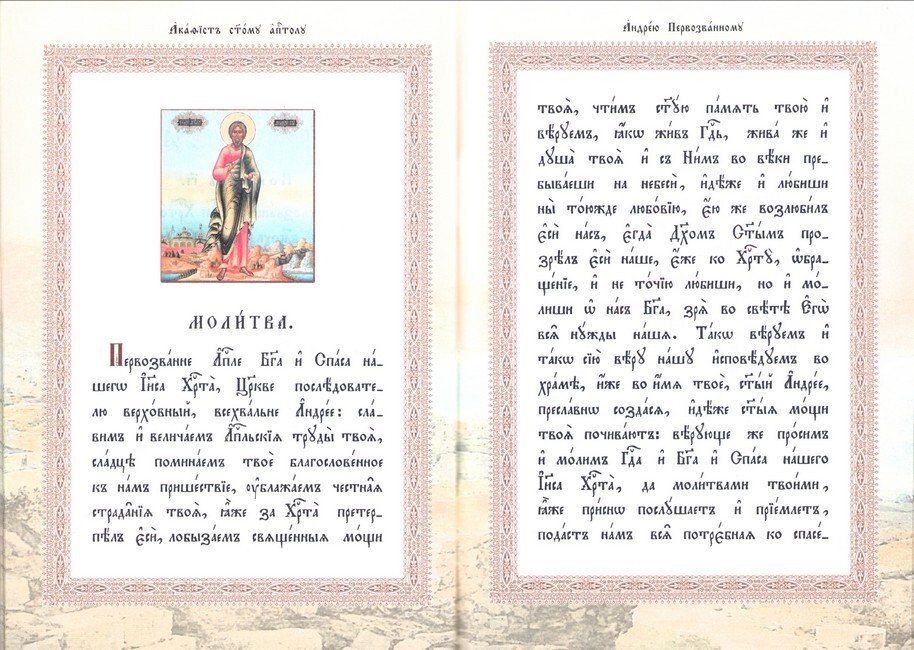 А҆ка́ѳїстъ ст҃о́му а҆пⷭ҇толу
МОЛИ́ТВА.
Первозва́нне А҆пⷭ҇ле Бг҃а и҆ Спа́са на́-
шегѡ І҆и҃са Хрⷭ҇та̀, Цр҃кве послѣ́довате-
лю верхо́вный, всехва́льне А҆ндре́е: сла́-
вимъ и҆ велича́емъ А҆пⷭ҇льскїѧ труды̀ твоѧ̑,
сла́дцѣ помина́емъ твоѐ благослове́нное
къ на́мъ прише́ствїе, ᲂу҆блажа́емъ честна̑ѧ
страда̑нїѧ твоѧ̑, ꙗ҆̀же за Хрⷭ҇та̀ претер-
пѣ́лъ є҆сѝ, лобыза́емъ свяще́нныѧ мо́щи
А҆ндре́ю Первозва́нному
твоѧ̑, чти́мъ ст҃у́ю па́мять твою̀ и҆
вѣ́руемъ, ꙗ҆́кѡ жи́въ Гдⷭ҇ь, жива́ же и҆
душа̀ твоѧ̀ и҆ съ Ни́мъ во вѣ́ки пре-
быва́еши на небесѝ, и҆дѣ́же и҆ лю́биши
ны̀ то́южде любо́вїю, є҆́ю же возлюби́лъ
є҆сѝ на́съ, є҆гда̀ Дх҃омъ Ст҃ы́мъ про-
зрѣ́лъ є҆сѝ на́ше, є҆́же ко Хрⷭ҇тꙋ̀, ѡ҆бра-
ще́нїе, и҆ не то́чїю лю́биши, но и҆ мо́-
лиши ѡ҆ на́съ Бг҃а, зря̀ во свѣ́тѣ Є҆гѡ̀
всѧ̑ нꙋ́жды на́шѧ. Та́кѡ вѣ́руемъ и҆
та́кѡ сїю̀ вѣ́рꙋ на́шꙋ и҆сповѣ́дуемъ во
хра́мѣ, и҆́же во и҆́мѧ твоѐ, ст҃ы́й А҆ндре́е,
пресла́внѡ созда́сѧ, и҆дѣ́же ст҃ы́ѧ мо́щи
твоѧ̑ почива́ютъ: вѣ́рующе же про́симъ
и҆ мо́лимъ Гдⷭ҇а и҆ Бг҃а и҆ Спа́са на́шего
І҆и҃са Хрⷭ҇та̀, да моли́твами твои́ми,
ꙗ҆̀же при́снѡ послу́шаетъ и҆ прїе́млетъ,
пода́стъ на́мъ всѧ̑ потрє́бная ко спасе́-